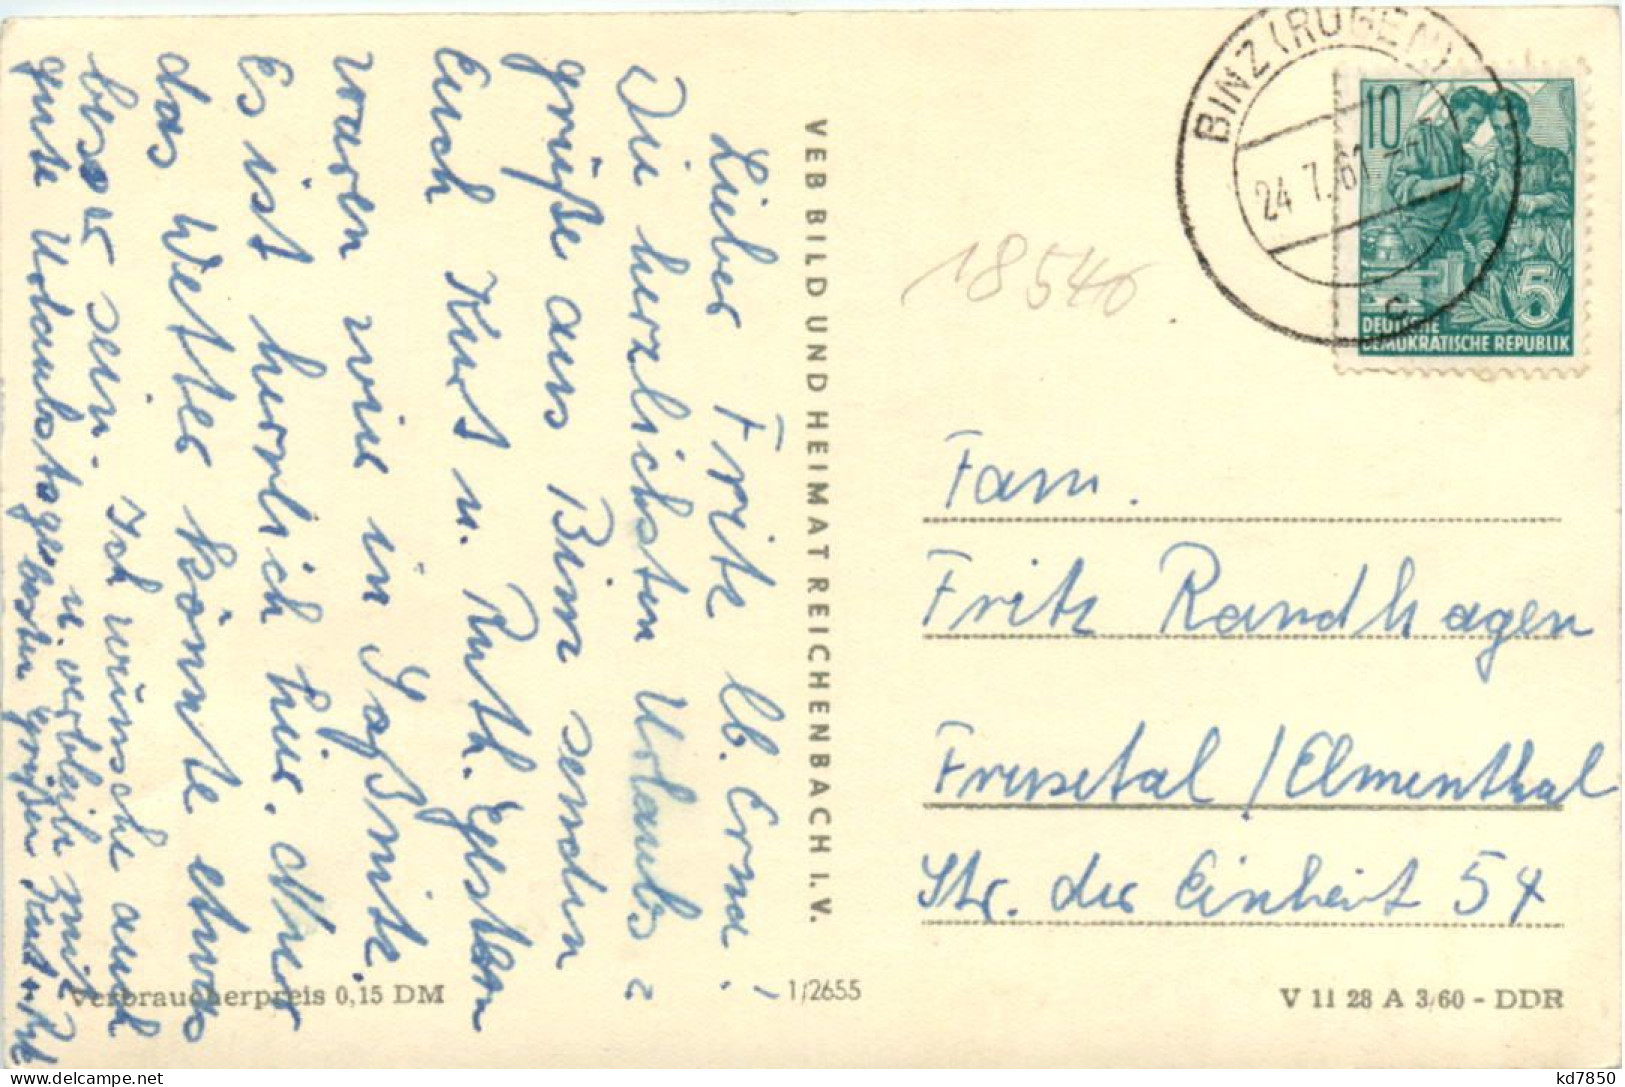 Lieber Fritz lb. Erna!
Die herzlichsten Urlaubs=
grüße aus Binz senden
Euch Kurt u. Ruth. Gestern
waren wir in Saßnitz.
Es ist herrlich hier. Aber
das Wetter könnte etwas
besser sein. Ich wünsche auch
gute Urlaubstage u. verbleibe mit
besten Grüßen Kurt u. Ruth
VEB BILD UND HEIMAT REICHENBACH I. V.
Verbraucherpreis 0,15 DM
1/2655
BINZ (RÜGEN)
24.7.61
c
10
5
DEUTSCHE
DEMOKRATISCHE REPUBLIK
18540
Fam.
Fritz Randhagen
Freisetal / Elmenthal
Str. der Einheit 54
V 11 28 A 3/60 - DDR
kd7850